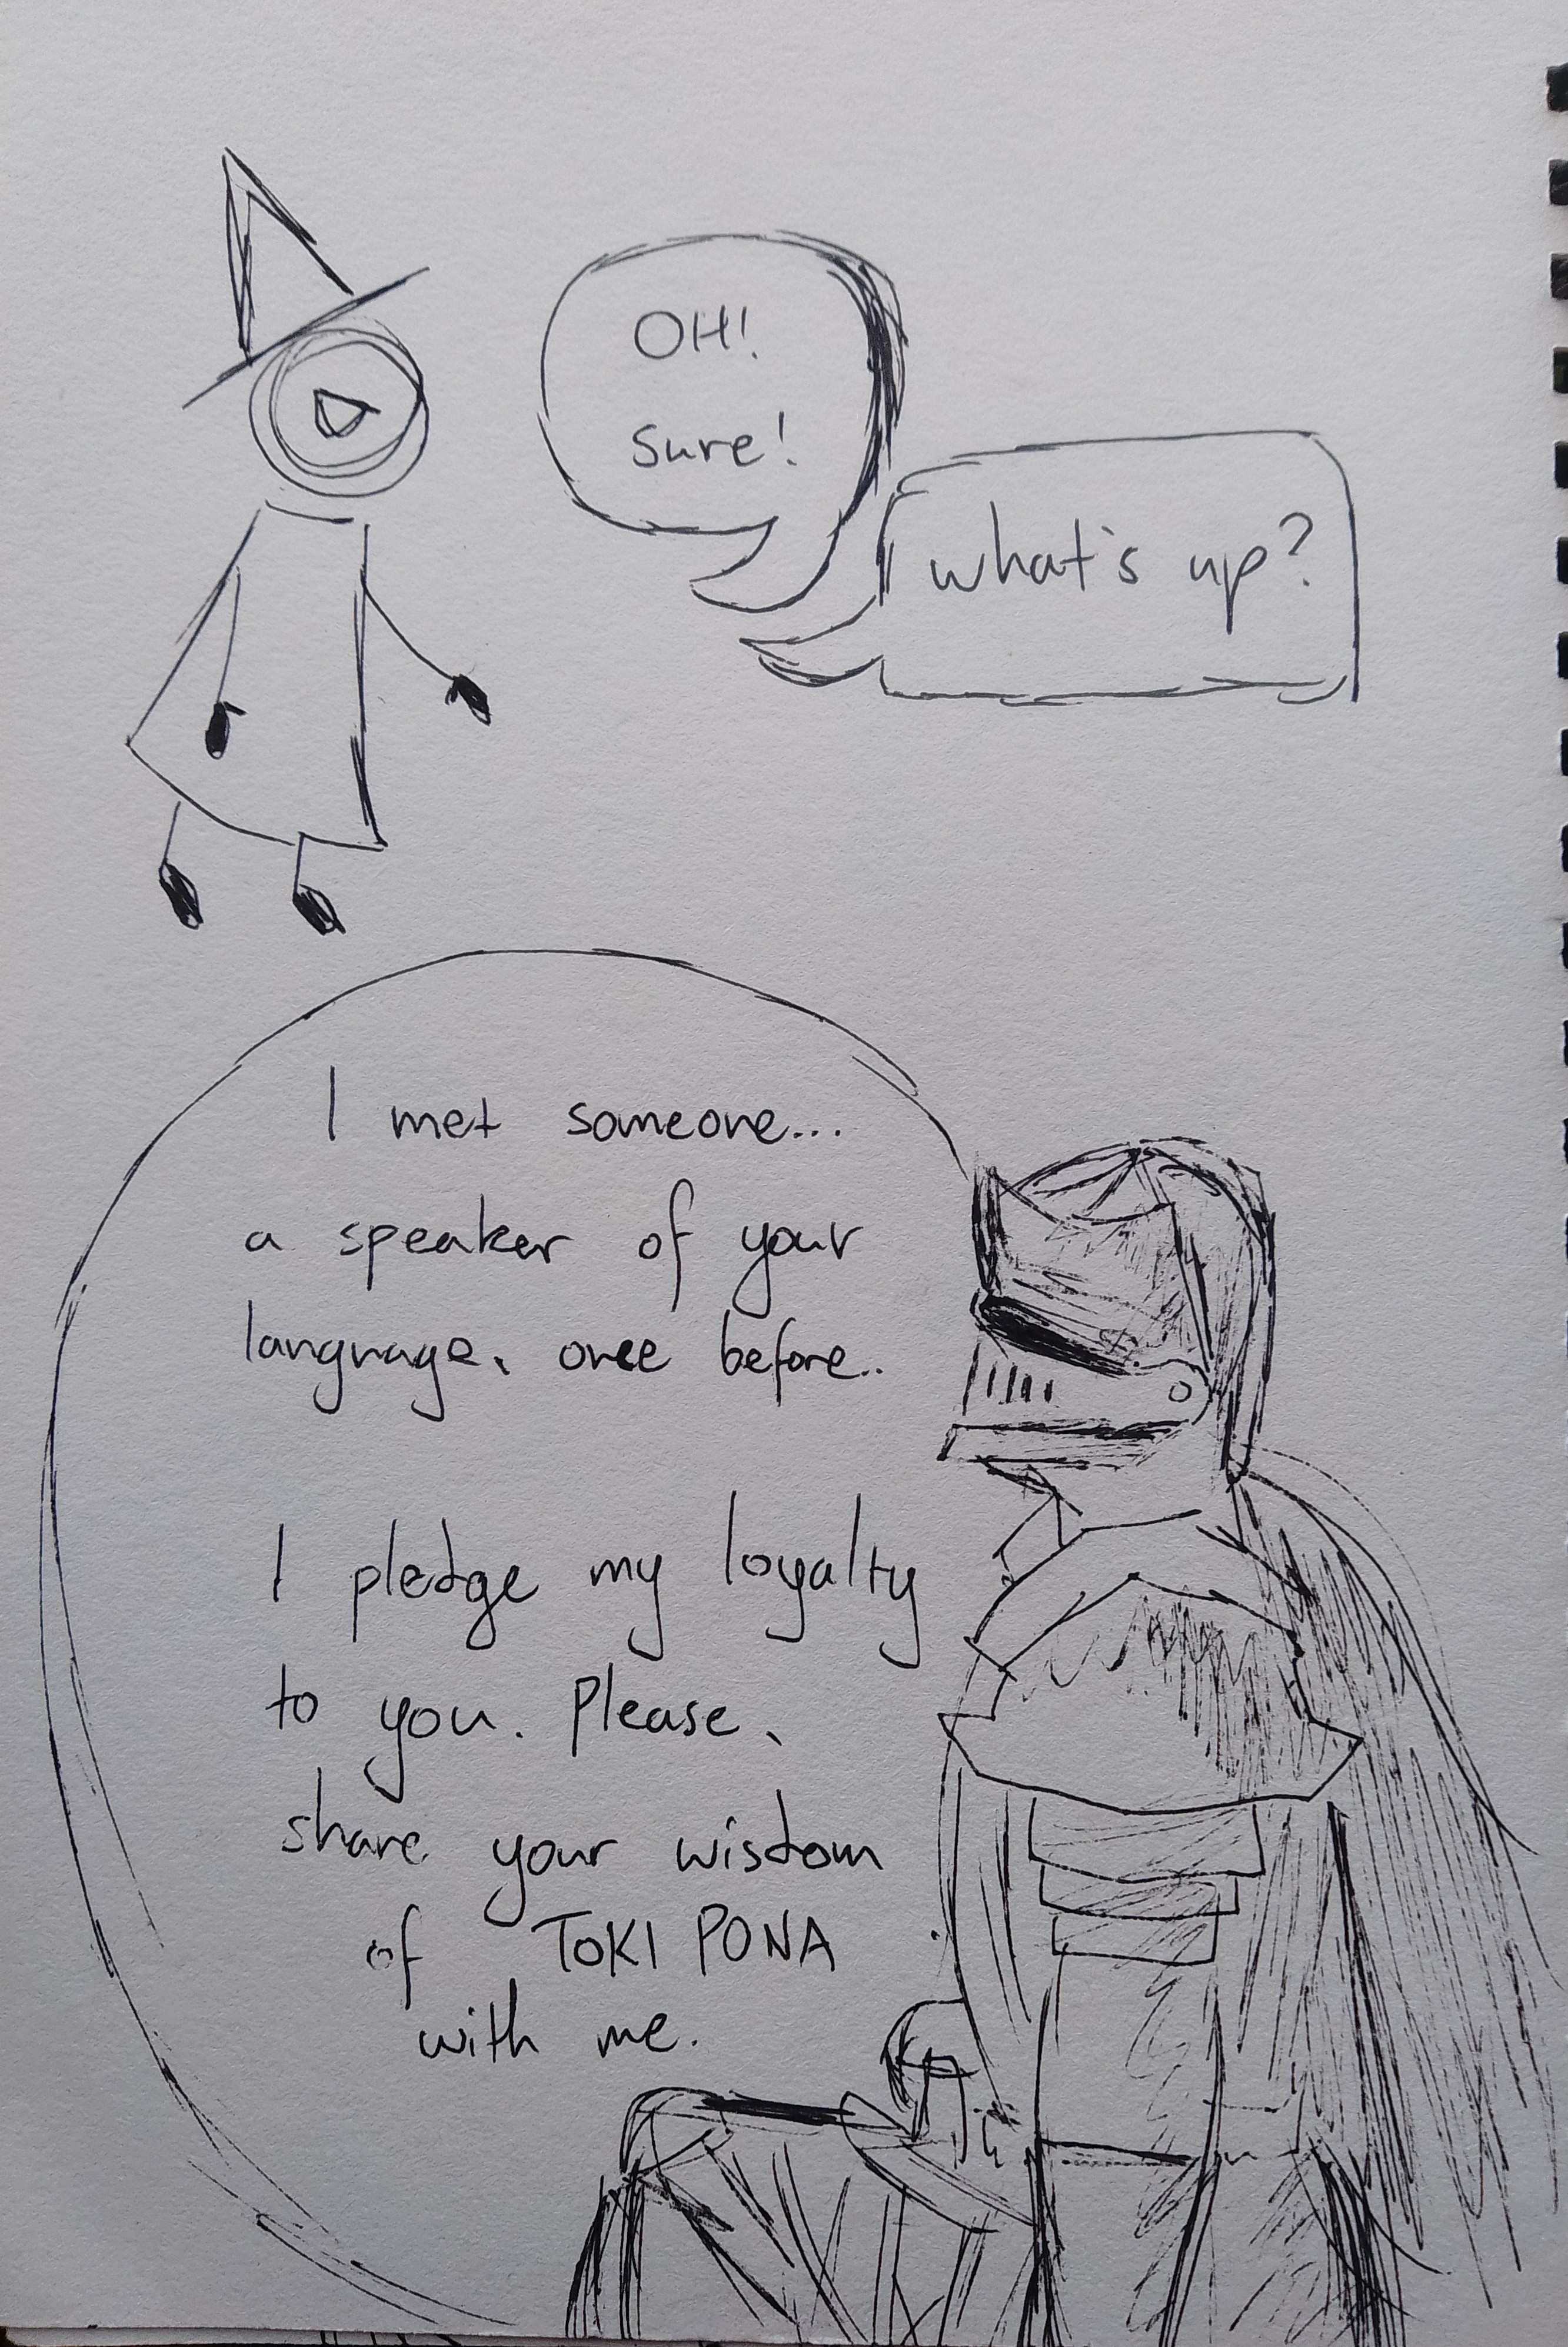 OH!
Sure!
what's up?
I met someone...
a speaker of your
language, once before..
I pledge my loyalty
to you. Please,
share your wisdom
of TOKI PONA
with me.